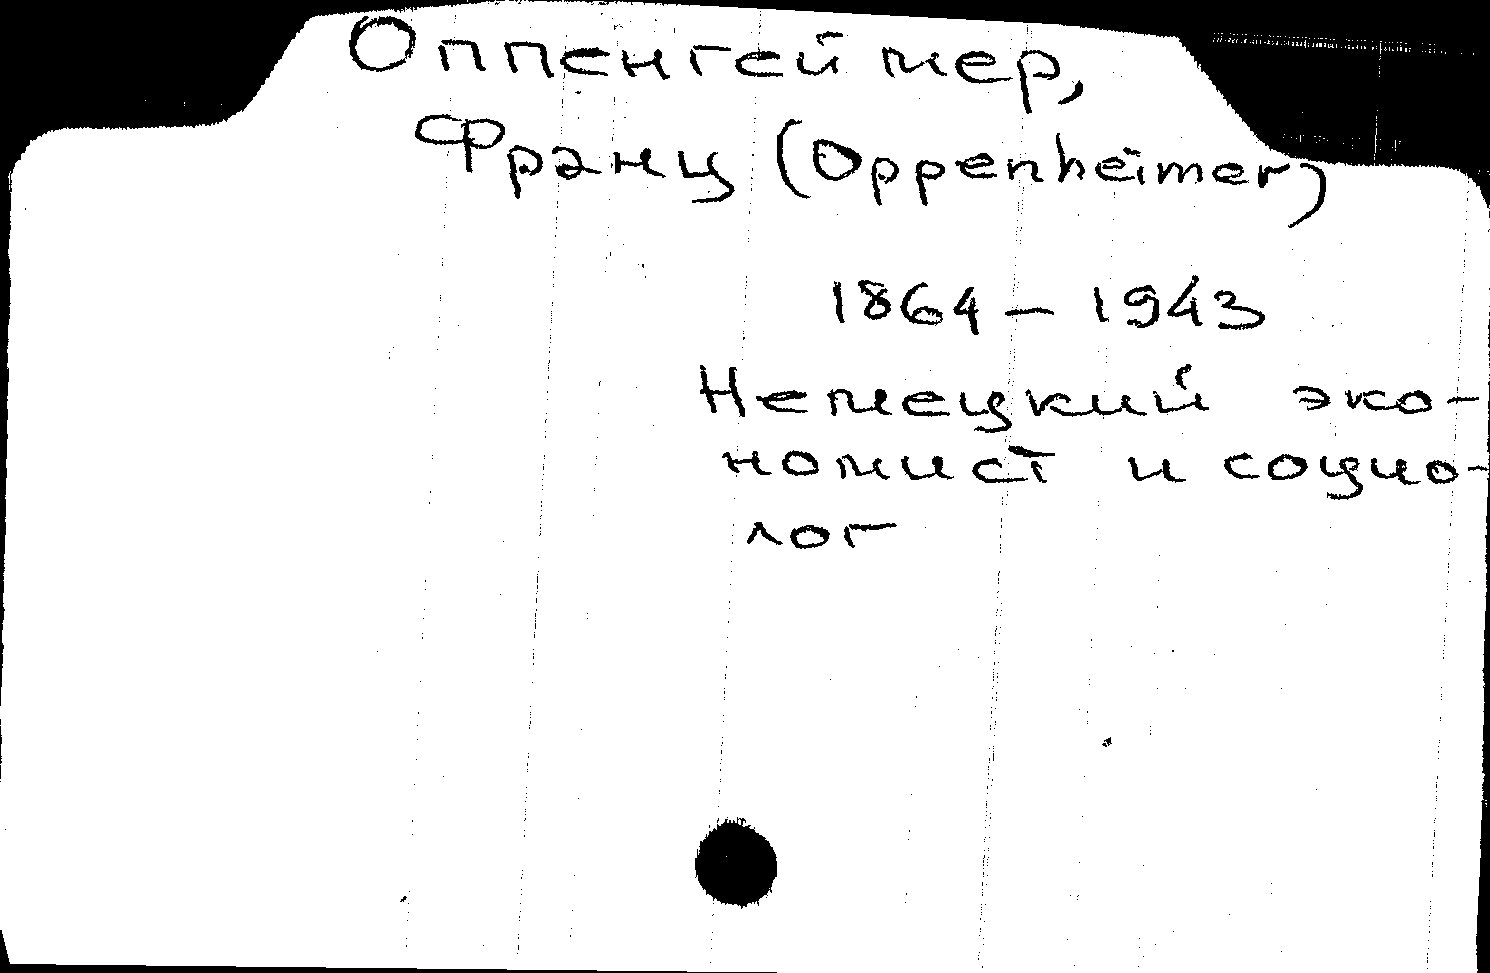 Оппенгеймер,
Франц (Oppenheimer)
1864 – 1943
Немецкий эко-
номист и социо-
лог